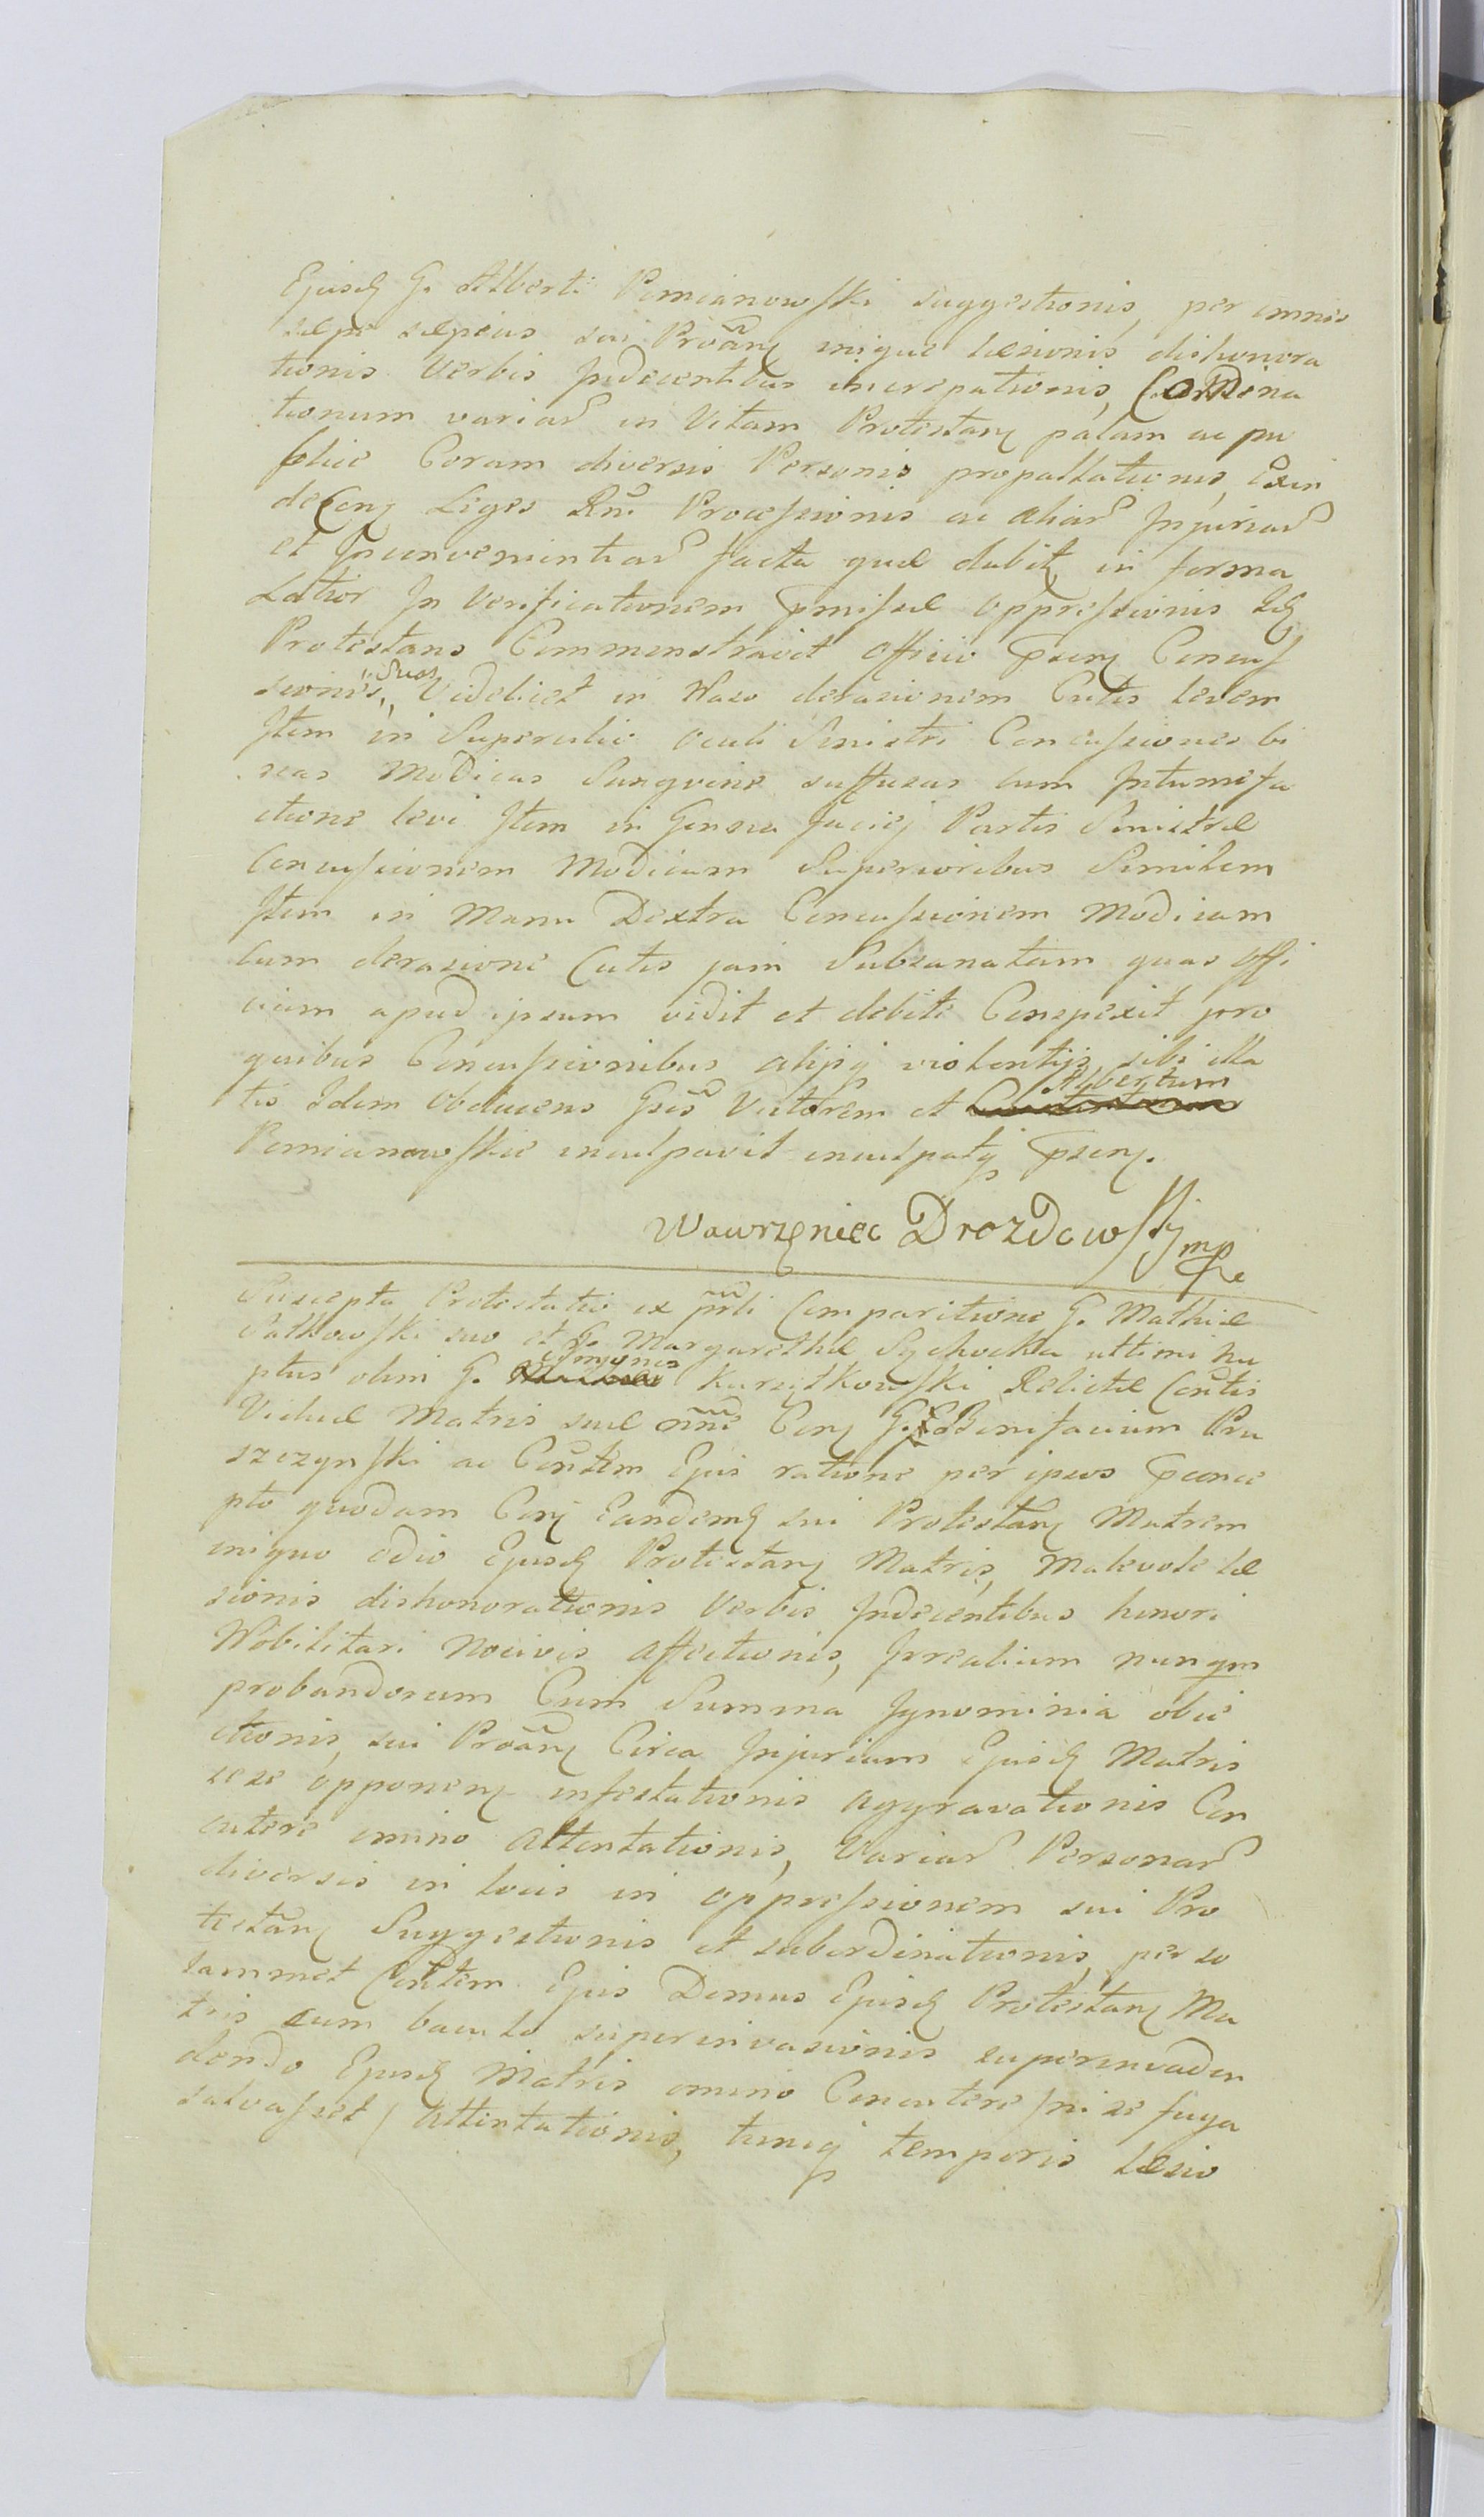 Ejusd G. Alberti Pomianowski suggestionis, per omnis
saepe saepius sui Proãnt inique laesionis dishonora
tionis Verbis Indecentibus increpationis, Comina
tionum variar in Vitam Protestant palam ac pu
blice Coram diversis Personis propallationis, Exin
de Cont Leges Rni Processionis ac aliar Injuriar
et Inconvenientiar facta quae dabit in forma
Latior In Verificationem pmissae oppressionis Id
Protestans Commonstravit officio psent Concus
siones, suas Videlicet in Naso derasionem Cutis levem
Item in Supercilio oculi Sinistri Concussiones bi
nas Modicas Sangvine suffusas cum Intumefa
ctione levi Item in Gensea faciej Partis Sinistrae
Concussionem Modicam Superioribus Similem
Item in Manu Dextra Concussionem Modicam
cum derasione Cutis jam Subsanatam quas offi
cium apud ipsum vidit et debite Conspexit pro
quibus Concussionibus alijsq violentijs sibi illa
tis Idem Obducens Gsos Victorem et Albertum
Pomianowskie inculpavit inculpatq psent.
Wawrzeniec Drozdowski mp
Suscepta Protestatio ex prli Comparitione G. Mathiae
Sutkowski suo et G. Margarethae Sychocka ultimi nu
ptus olim G. Szymonis Kurzątkowski Relictae Consortis
Viduae Matris suae nne Cont G. Bonifacium Pru
szczynski ac Contem Ejus ratione per ipsos pconce
pto quodam Cont Eandemq sui Protestant Matrem
iniquo odio Ejusd Protestant Matris, Malevole lae
sionis dishonorationis Verbis Indecentibus honori
Nobilitari Nocivis affectionis, Irrealium nunqm
probandorum Cum Summa Ignominia obie
ctionis, sui Proãnt Circa Injuriam Ejusd Matris
sese opponent infestationis aggravationis Con
cutere omino attentationis, Variar Personar
diversis in locis in oppressionem sui Pro
testant Suggestionis et subordinationis, per so
lammet Contem Ejus Domus Ejusd Protestant Ma
tris cum baculo superinvasionis superinvaden
dendo Ejusd Matris omino Concutere /ni se fuga
salvasset/ attentationis, tuniq temporis laesio